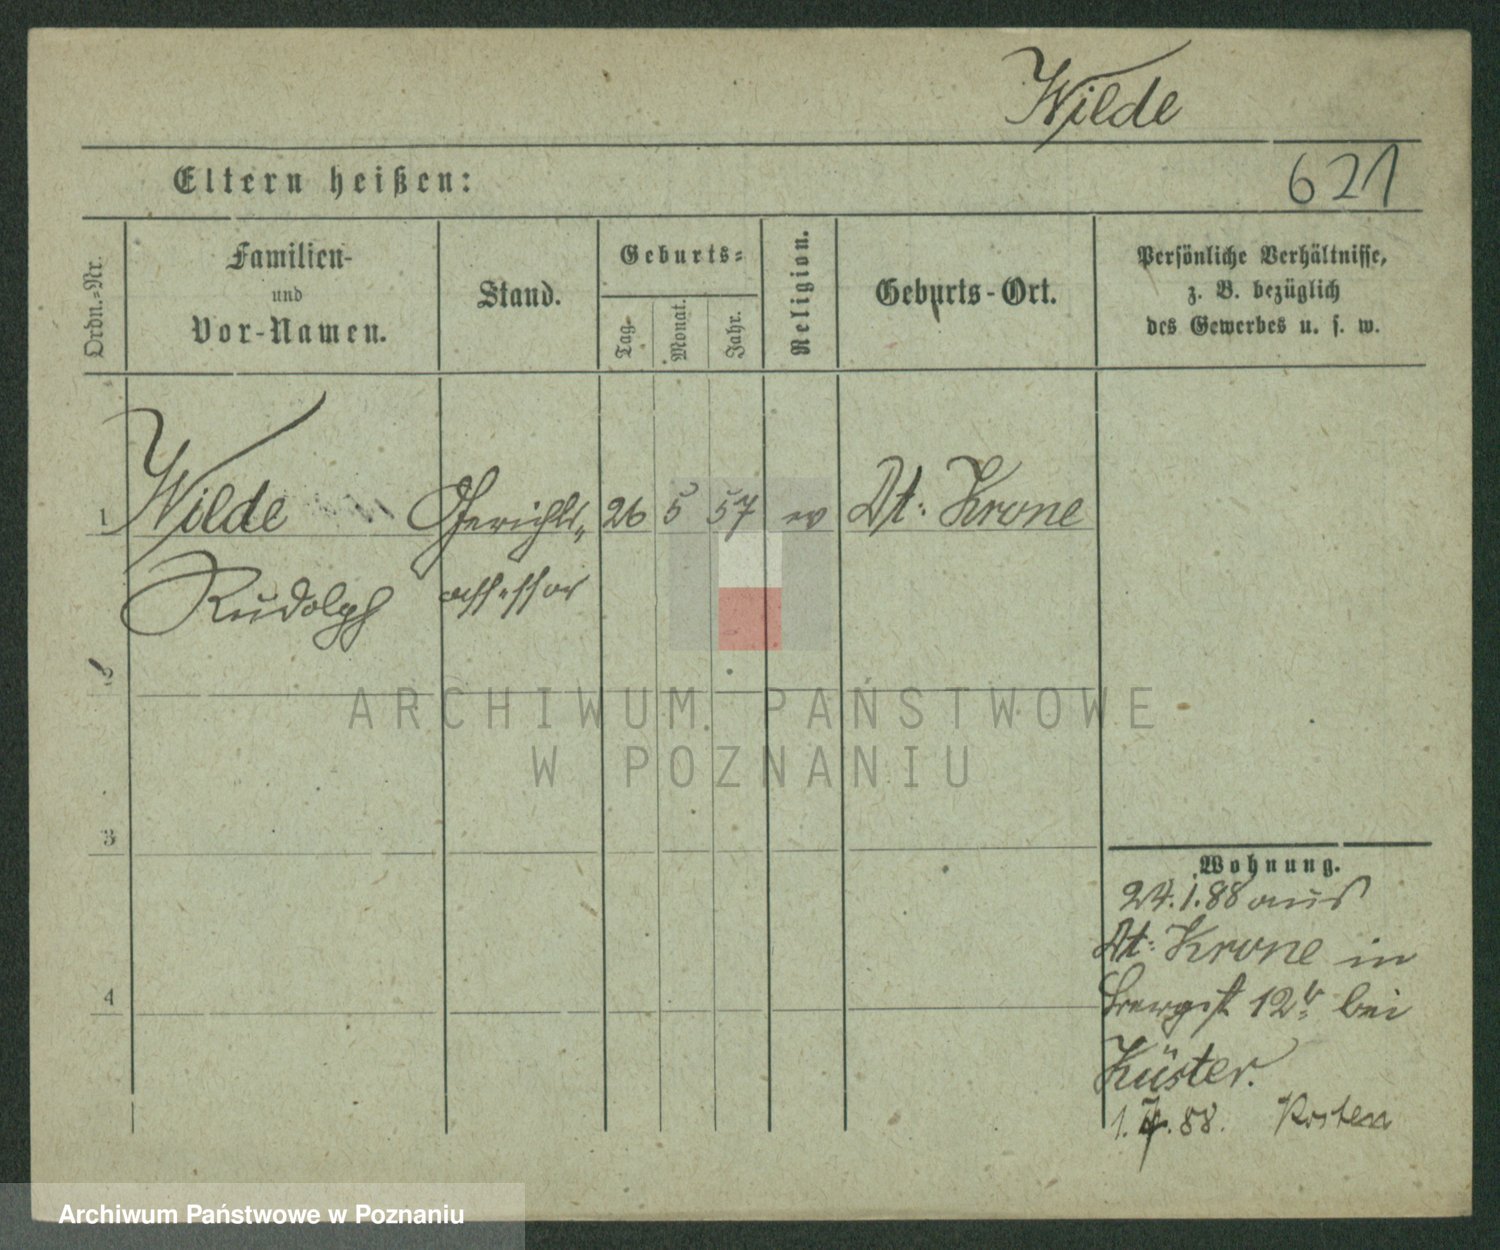 Wilde
Eltern heißen:
621
Ordn.=Nr.
Familien-
und
Vor-Namen.
Stand.
Geburts=
Tag.
Monat.
Jahr.
Religion.
Geburts-Ort.
Persönliche Verhältnisse,
z. B. bezüglich
des Gewerbes u. s. w.
1 Wilde Gerichts- 26 5 57 ev Dt: Krone
Rudolph assessor
2
ARCHIWUM PAŃSTWOWE
W POZNANIU
3
Wohnung.
24.1.88 aus
Dt: Krone in
4
12 bei
Küster.
1. 88. Kosten
Archiwum Państwowe w Poznaniu